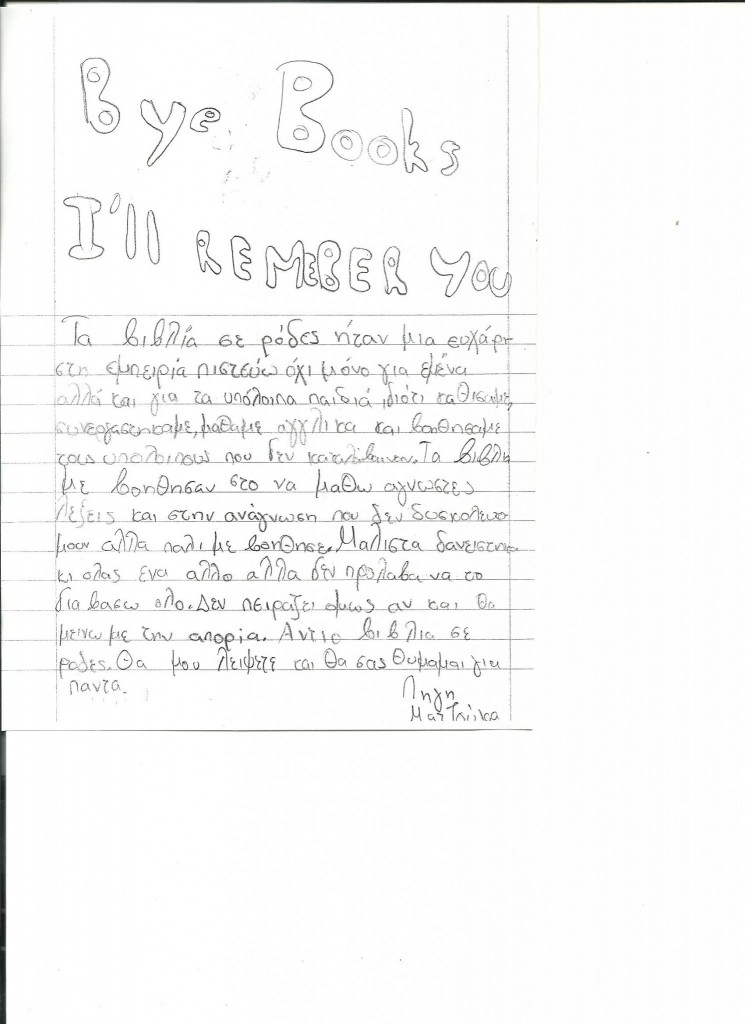 Bye Books
I'll REMEBER YOU
Τα βιβλία σε ρόδες ήταν μια ευχάρι
στη εμπειρία πιστεύω όχι μόνο για εμένα
αλλά και για τα υπόλοιπα παιδιά, διότι καθίσαμε,
συνεργαστηκαμε, μάθαμε αγγλικα και βοηθησαμε
τους υπολοιπους που δεν καταλάβαιναν. Τα βιβλία
με βοηθησαν στο να μαθω αγνωστες
λέξεις και στην ανάγνωση που δεν δυσκολευο
μουν αλλα παλι με βοηθησε. Μαλιστα δανειστηκα
κι ολας ενα αλλο αλλα δεν προλαβα να το
διαβασω ολο. Δεν πειράζει ομως αν και θα
μεινω με την απορία. Αντιο βιβλια σε
ροδες. Θα μου λειψετε και θα σας θυμαμαι για
παντα.
Πηγη